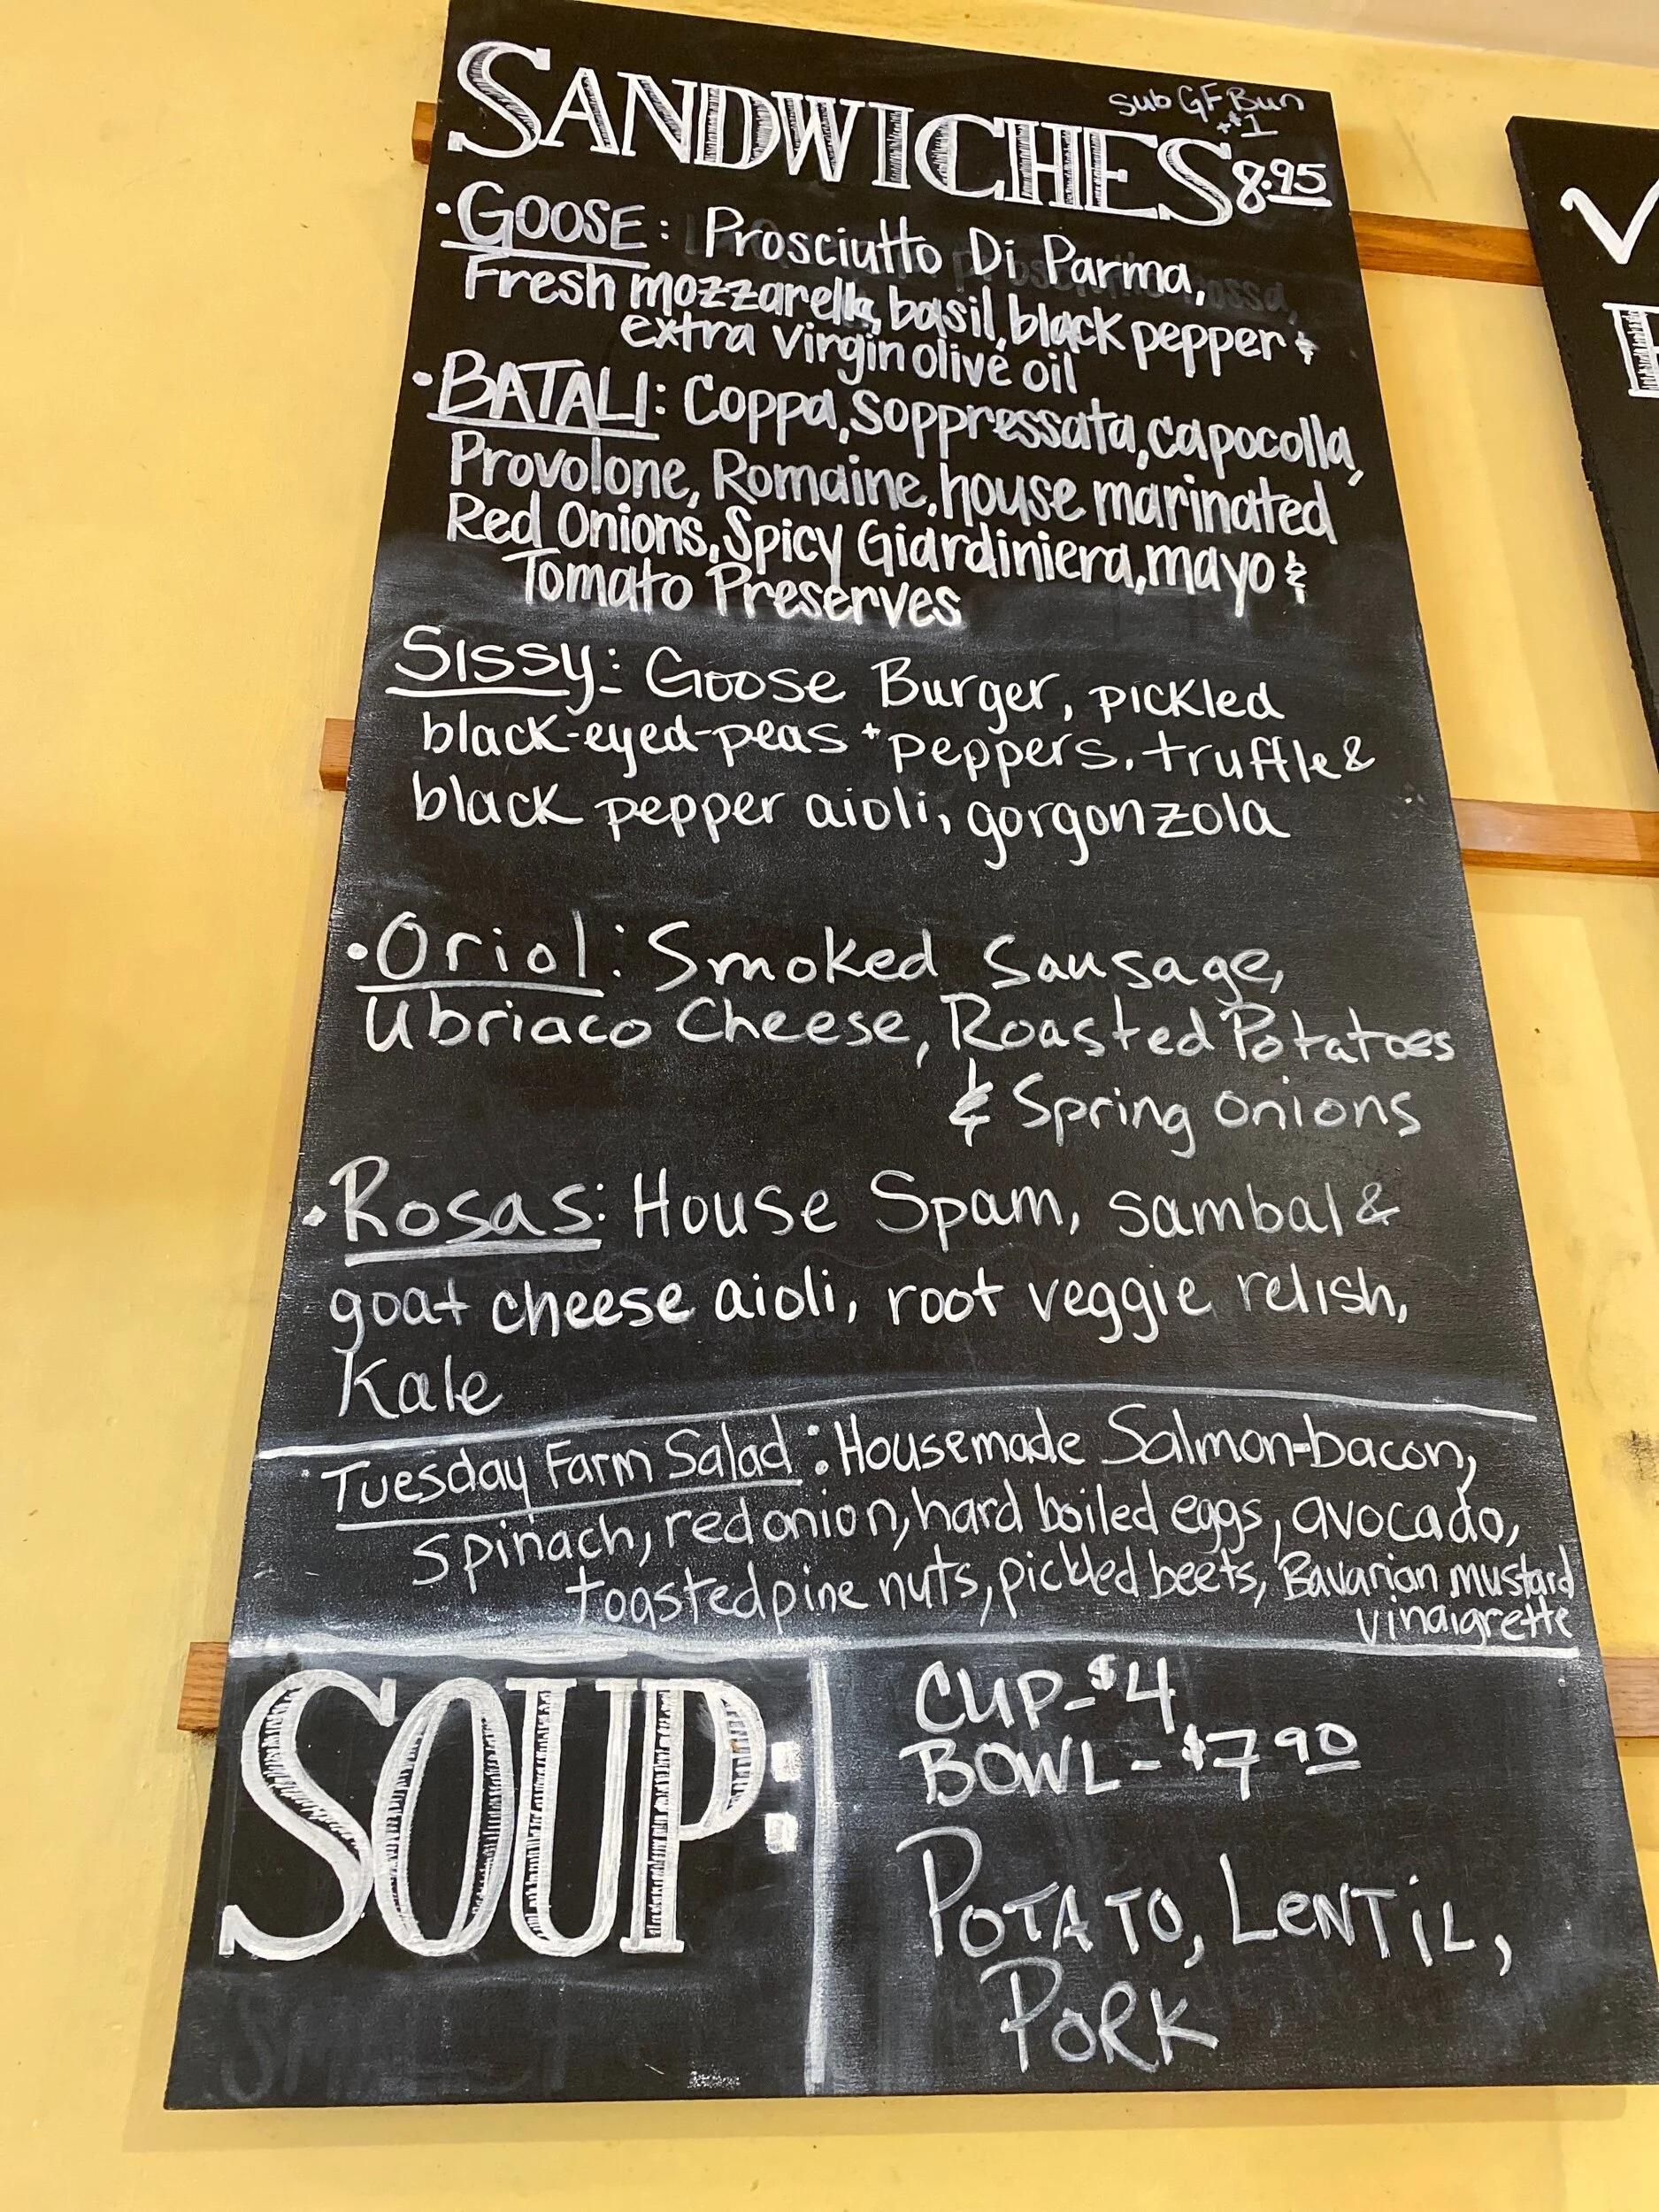 SANDWICHES
sub GF Bun
+$1
8.95
• GOOSE: Prosciutto Di Parma,
Fresh mozzarella, basil, black pepper &
extra virgin olive oil
• BATALI: Coppa, Soppressata, capocolla,
Provolone, Romaine, house marinated
Red Onions, Spicy Giardiniera, mayo &
Tomato Preserves
Sissy: Goose Burger, pickled
black-eyed-peas + peppers, truffle &
black pepper aioli, gorgonzola
• Oriol: Smoked Sausage,
Ubriaco Cheese, Roasted Potatoes
& Spring onions
• Rosas: House Spam, sambal &
goat cheese aioli, root veggie relish,
Kale
• Tuesday Farm Salad: Housemade Salmon-bacon,
spinach, red onion, hard boiled eggs, avocado,
toasted pine nuts, pickled beets, Bavarian mustard
vinaigrette
SOUP:
CUP - $4
BOWL - $7 90
POTATO, LENTiL,
PORK